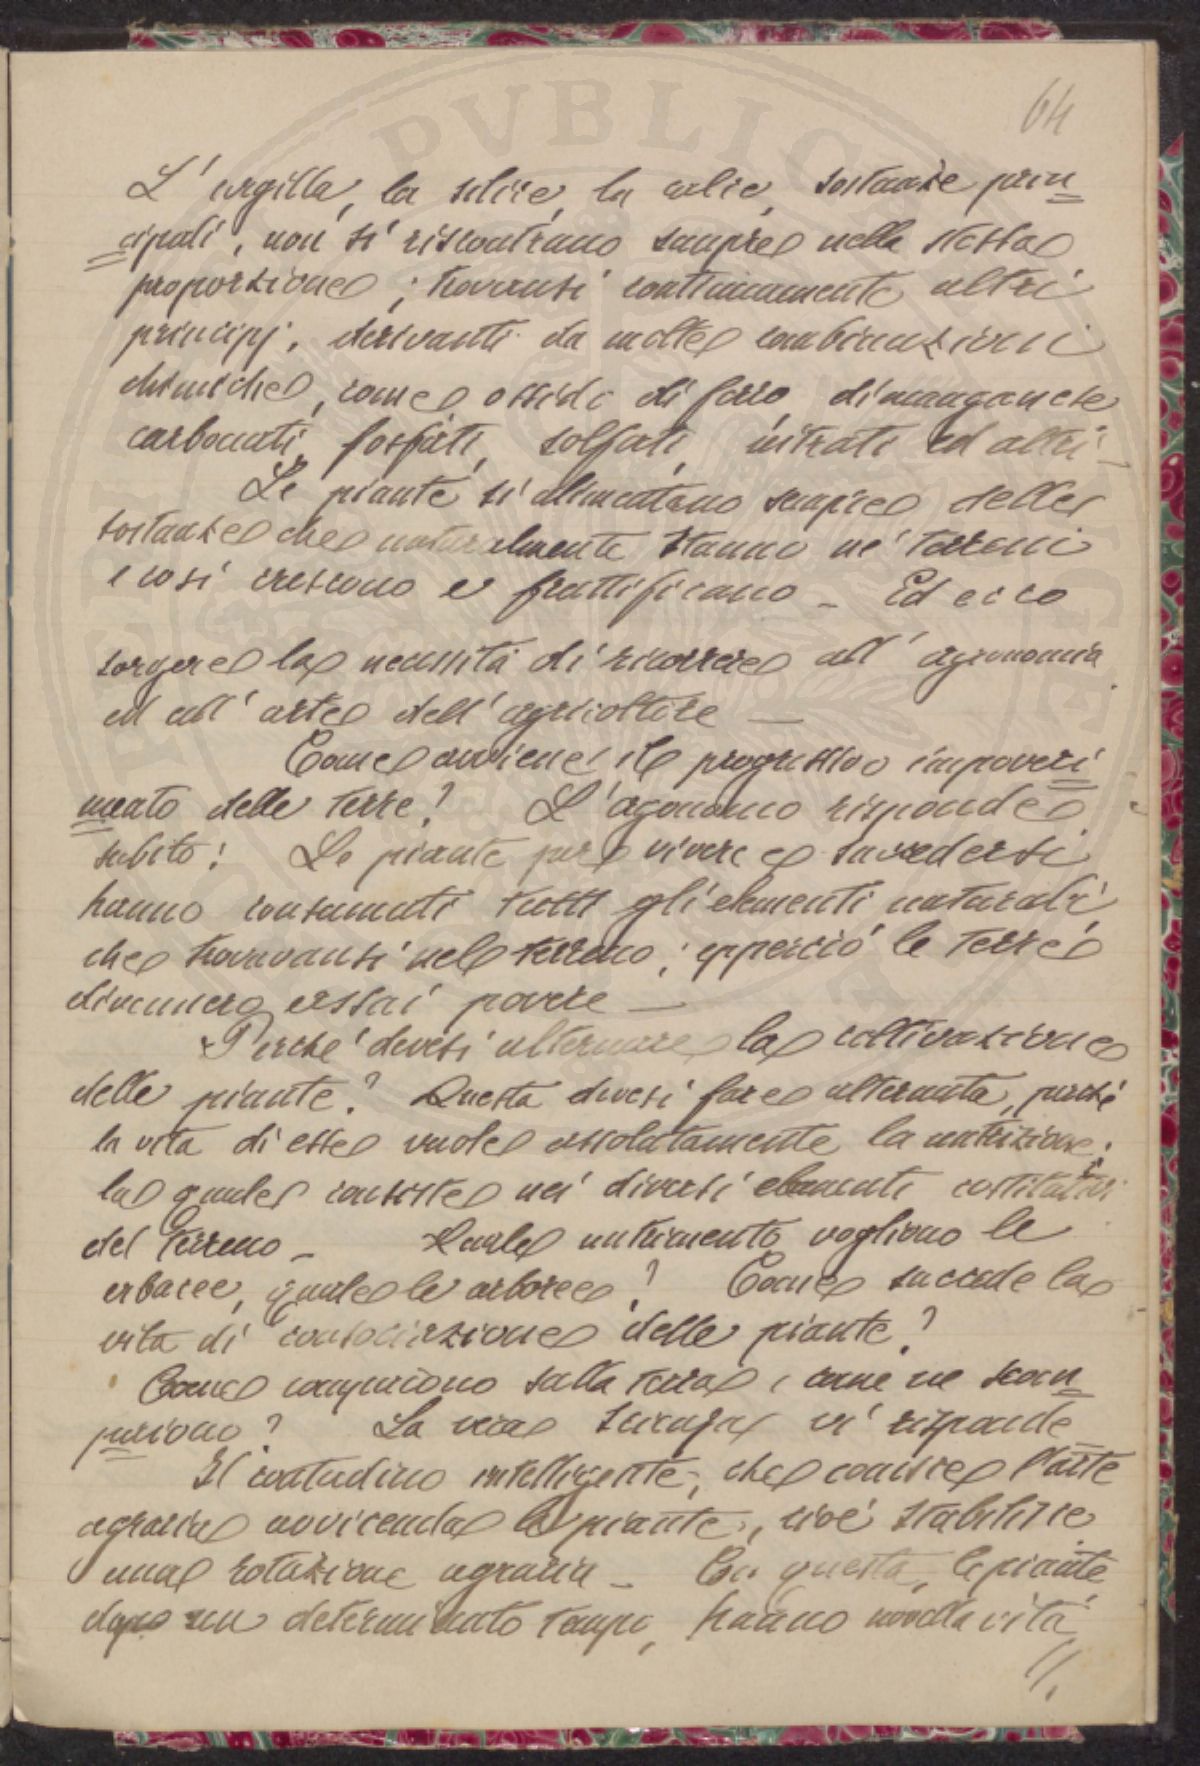 64
L'argilla, la silice, la calce, sostanze prin=
=cipali, non si riscontrano sempre nella stessa
proporzione; trovansi continuamente altri
principj, derivanti da molte combinazioni
chimiche, come ossido di ferro, di manganese
carbonati, fosfati, solfati, nitrati ed altri -
Le piante si alimentano sempre delle
sostanze che naturalmente stanno ne' terreni
e così crescono e fruttificano - Ed ecco
sorgere la necessità di ricorrere all'agronomia
ed all'arte dell'agricoltore -
Come avviene il progressivo impoveri=
=mento delle terre? L'agronomo risponde
subito: Le piante per vivere e succedersi
hanno consumati tutti gli elementi naturali
che trovavansi nel terreno; epperciò le terre
divennero assai povere -
Perché devesi alternare la coltivazione
delle piante? Questa devesi fare alternata, perché
la vita di esse vuole assolutamente la nutrizione;
la quale consiste nei diversi elementi costitutivi
del terreno - Quale nutrimento vogliono le
erbacee, quale le arboree? Come succede la
vita di consociazione delle piante?
Come compariono sulla terra, e come ne scom=
=pariono? La vera scienza vi risponde -
Il contadino intelligente, che conosce l'arte
agraria avvicenda le piante, cioè stabilisce
una rotazione agraria - Con questa, le piante,
dopo un determinato tempo, hanno novella vita
//.
PVBLIC